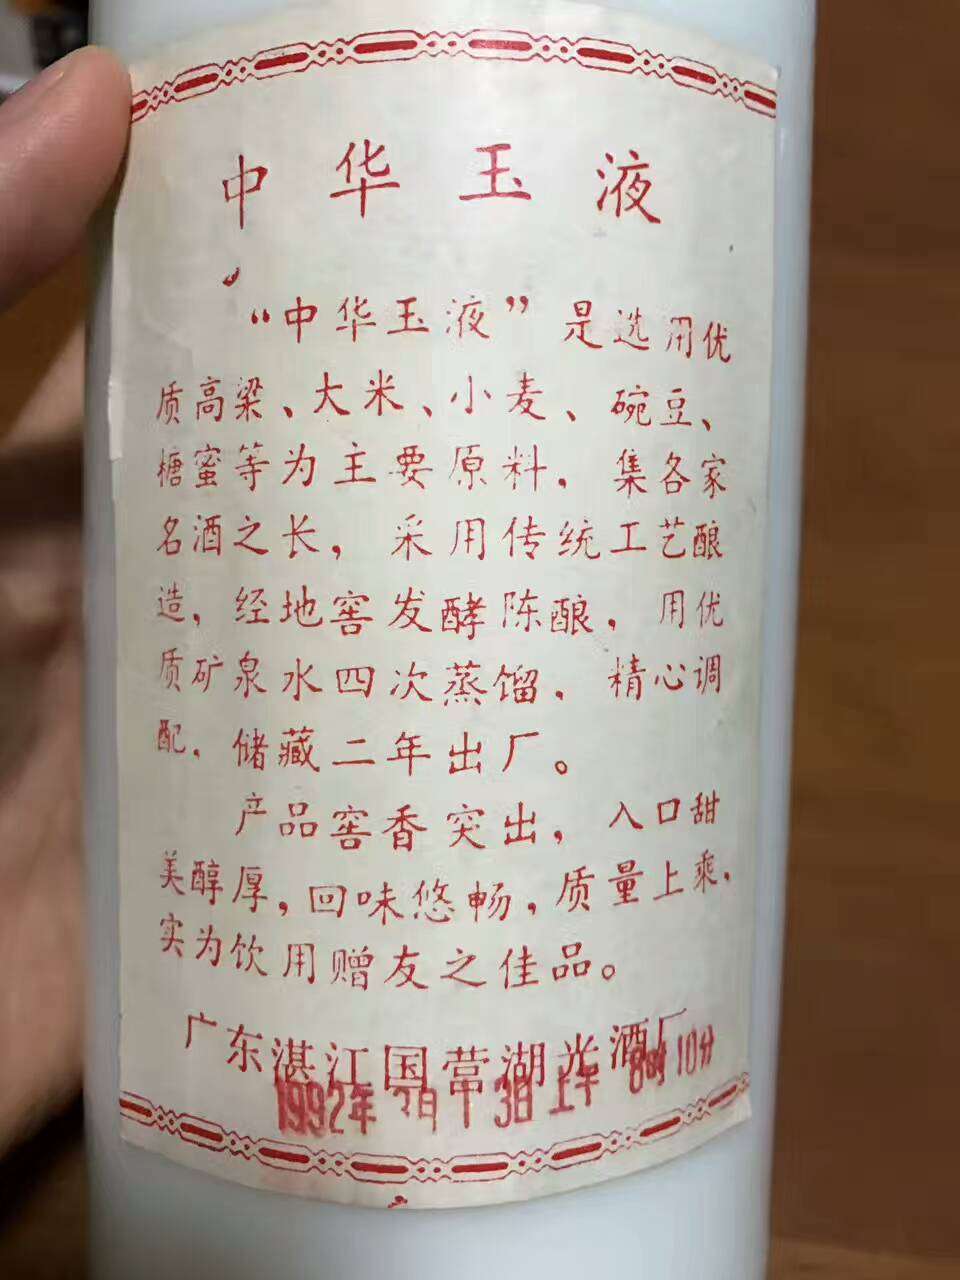 中华玉液
“中华玉液”是选用优
质高粱、大米、小麦、碗豆、
糖蜜等为主要原料，集各家
名酒之长，采用传统工艺酿
造，经地窖发酵陈酿，用优
质矿泉水四次蒸馏，精心调
配，储藏二年出厂。
产品窖香突出，入口甜
美醇厚，回味悠畅，质量上乘，
实为饮用赠友之佳品。
广东湛江国营湖光酒厂
1992年 月13日上午8时10分